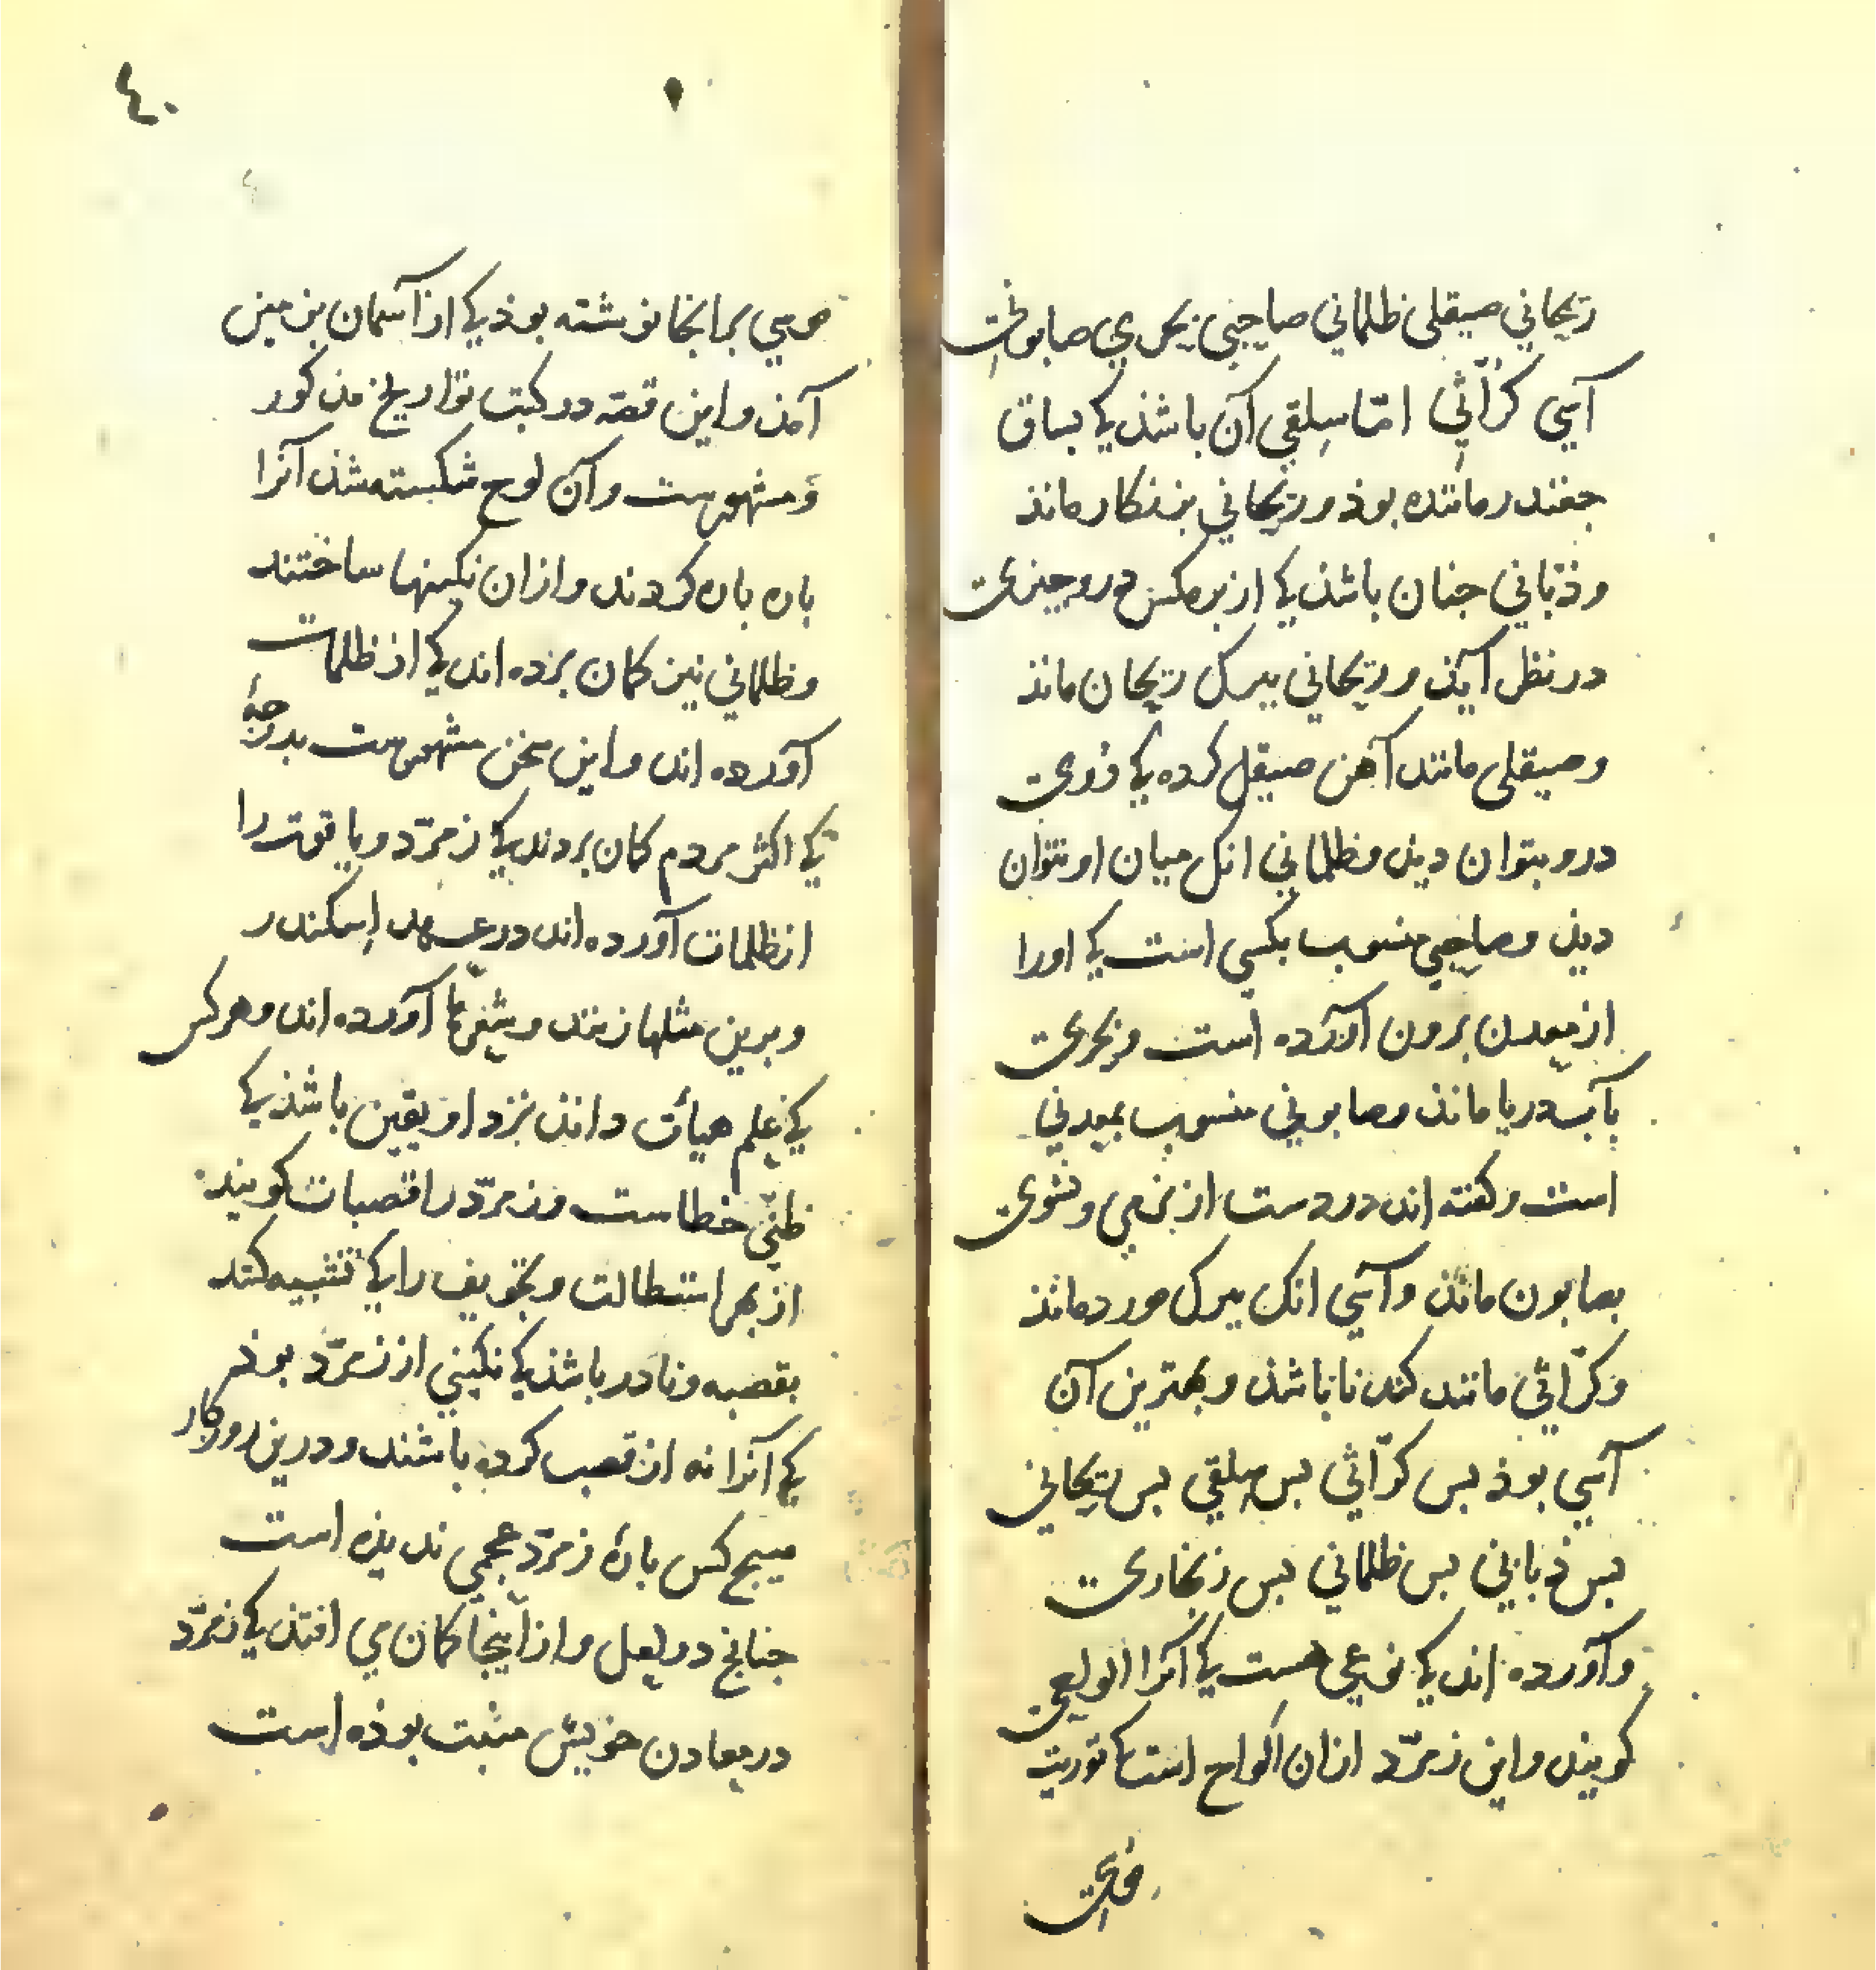 ریحانی صیقلی ظلمانی صاحبی بحری صابونی
آسی کرّاثی امّا سلقی آن باشذ کی بساق
جغندر ماننده بوذ و ریحانی بزنکار مانذ
و ذبّانی جنان باشذ کی از بر مکس درو جیزی
در نظر آیذ و ریحانی ببرک ریحان مانذ
و صیقلی مانند آهن صیقل کرده کی روی
درو بتوان دیذ و ظلمانی انک میان او نتوان
دیذ و صاحبی منسوب بکسی است کی اورا
از معدن برون آورده است و بحری
بآب دریا مانذ و صابونی منسوب بمعدنی
است و کفته اند در دست از نرمی و نسوی
بصابون مانذ و آسی انک ببرک مورد مانذ
و کرّاثی مانند کندنا باشذ و بهترین آن
آسی بوذ بس کرّاثی بس سلقی بس ریحانی
بس ذبابی بس ظلمانی بس زنجاری
و آورده اند کی نوعی هست کی آنرا الواحی
کویند و این زمرّد ازان الواح است کی توریة
موسی
موسی برانجا نوشته بوذ کی از آسمان بزمین
آمذ و این قصّه در کتب تواریخ مذکور
و مشهورست و آن لوح شکسته شذ آنرا
باره باره کردند و ازان نکینها ساختند
و ظلمانی نیز کمان برده اند کی از ظلمات
آورده اند و این سخن مشهورست بدرجهٔ
کی اکثر مردم کمان بردند کی زمرّد و یاقوت را
از ظلمات آورده اند در عهد اسکندر
و برین مثلها زنند و شعرها آورده اند و هرکس
کی علم هیأت داند نزد او یقین باشذ کی
ظنّی خطاست و زمرّد را قصبات کویند
از بهر استطالت و تجویف را کی تشبیه کند
بقصبه و نادر باشذ کی نکینی از زمرّد بوذ
کی آنرا نه از قصب کرده باشند و درین روزکار
هیج کس بارهٔ زمرّد عجمی ندیذه است
جنانج در لعل و از آنجا کمان می افتذ کی زمرّد
در معادن خویش مثبت بوذه است